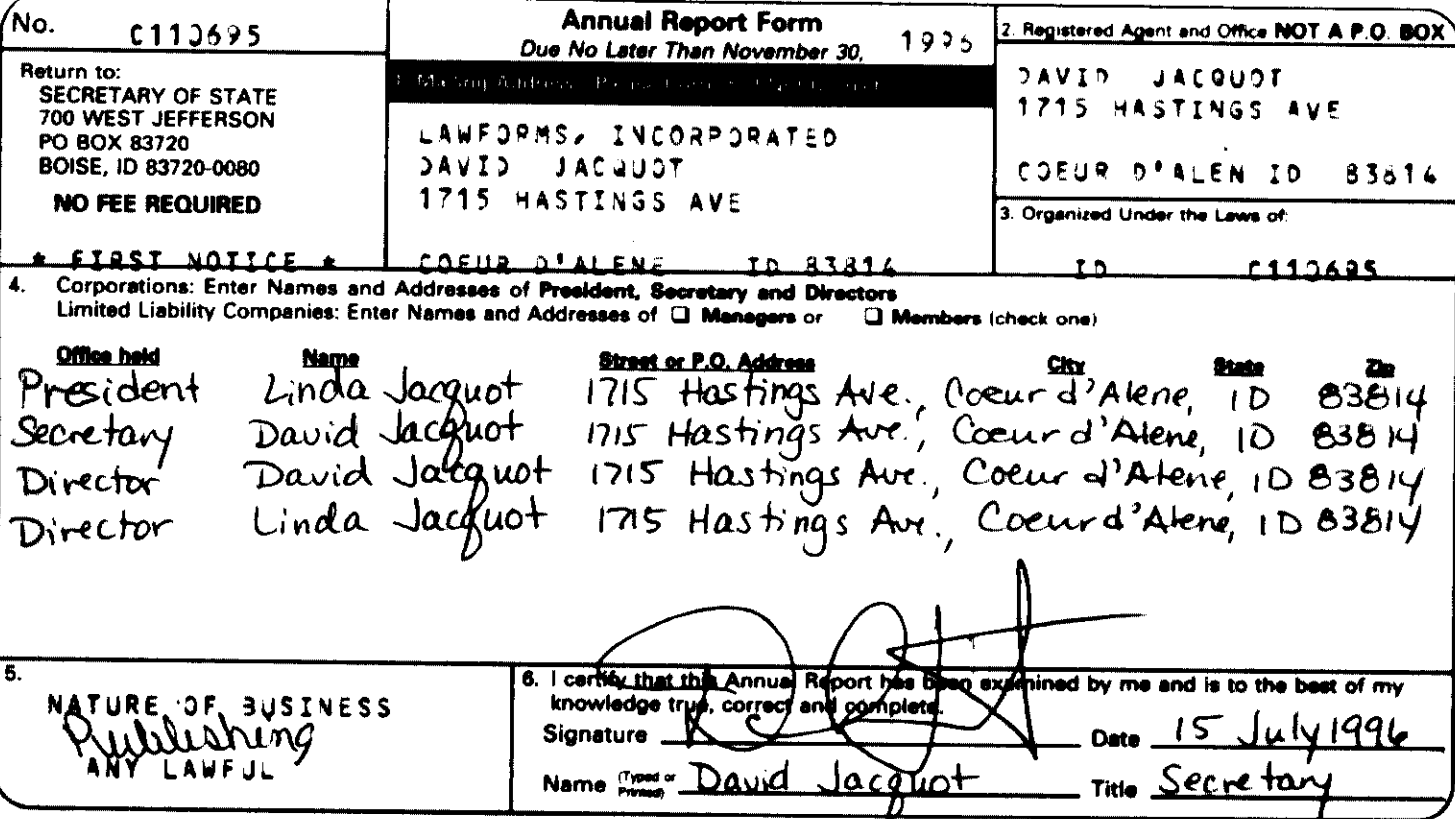 No. C110695
Annual Report Form
Due No Later Than November 30, 1996
2. Registered Agent and Office NOT A P.O. BOX
Return to:
SECRETARY OF STATE
700 WEST JEFFERSON
PO BOX 83720
BOISE, ID 83720-0080
NO FEE REQUIRED
* FIRST NOTICE *
1. Mailing Address
LAWFORMS, INCORPORATED
DAVID JACQUOT
1715 HASTINGS AVE
COEUR D'ALENE ID 83814
DAVID JACQUOT
1715 HASTINGS AVE
COEUR D'ALEN ID 83814
3. Organized Under the Laws of:
ID C110695
4. Corporations: Enter Names and Addresses of President, Secretary and Directors
Limited Liability Companies: Enter Names and Addresses of ☐ Managers or ☐ Members (check one)
Office held Name Street or P.O. Address City State Zip
President Linda Jacquot 1715 Hastings Ave., Coeur d'Alene, ID 83814
Secretary David Jacquot 1715 Hastings Ave., Coeur d'Alene, ID 83814
Director David Jacquot 1715 Hastings Ave., Coeur d'Alene, ID 83814
Director Linda Jacquot 1715 Hastings Ave., Coeur d'Alene, ID 83814
5. NATURE OF BUSINESS
Publishing
ANY LAWFUL
6. I certify that this Annual Report has been examined by me and is to the best of my
knowledge true, correct and complete.
Signature Date 15 July 1996
Name (Typed or Printed) David Jacquot Title Secretary